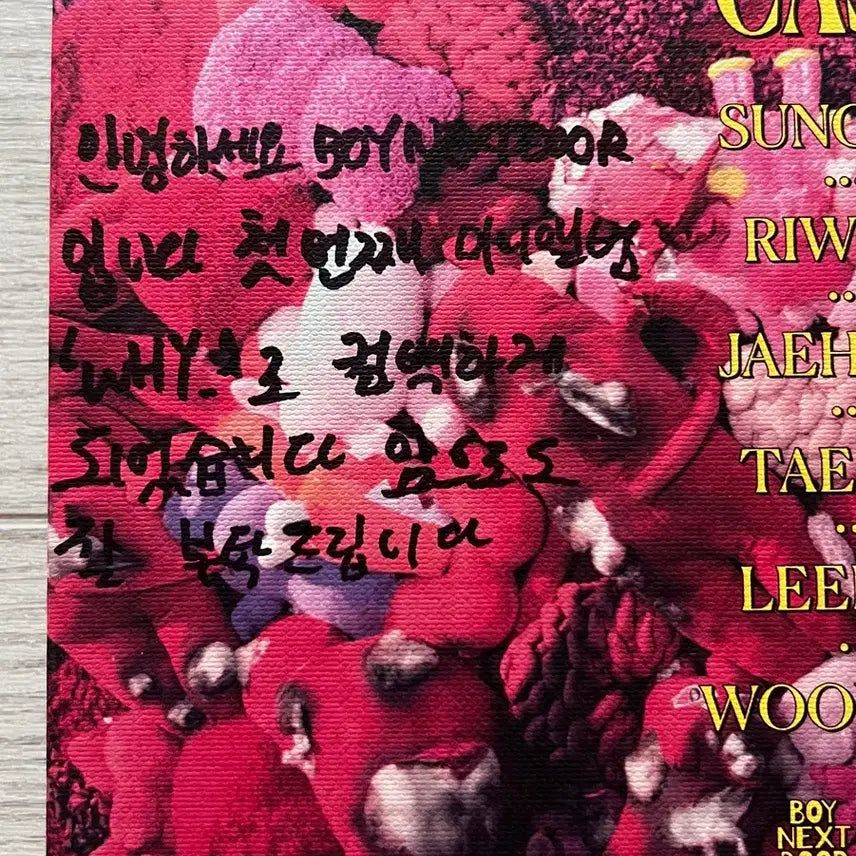 안녕하세요 BOYNEXTDOOR
입니다 첫 번째 미니앨범
'WHY..'로 컴백하게
되었습니다 앞으로도
잘 부탁드립니다
CAS
SUNG
RIW
JAEH
TAE
LEE
WOO
BOY
NEXT
DOOR